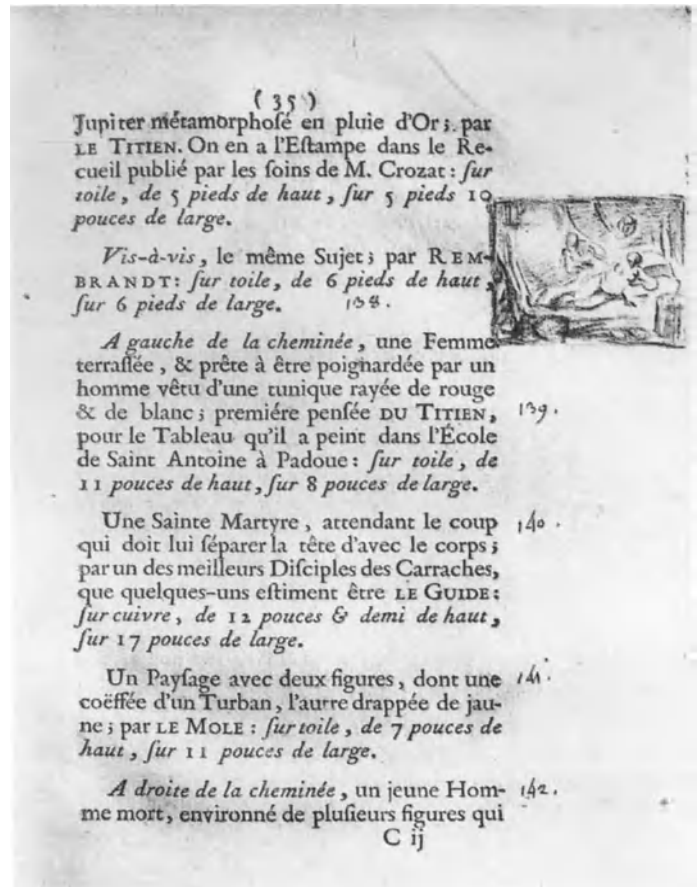 ( 35 )
Jupiter métamorphoſé en pluie d'Or; par
LE TITIEN. On en a l'Eſtampe dans le Re-
cueil publié par les ſoins de M. Crozat: ſur
toile, de 5 pieds de haut, ſur 5 pieds 10
pouces de large.
Vis-à-vis, le même Sujet; par REM-
BRANDT: ſur toile, de 6 pieds de haut,
ſur 6 pieds de large. 138.
A gauche de la cheminée, une Femme
terraſſée, & prête à être poignardée par un
homme vêtu d'une tunique rayée de rouge
& de blanc; premiére penſée DU TITIEN, 139.
pour le Tableau qu'il a peint dans l'École
de Saint Antoine à Padoue: ſur toile, de
11 pouces de haut, ſur 8 pouces de large.
Une Sainte Martyre, attendant le coup 140.
qui doit lui ſéparer la tête d'avec le corps;
par un des meilleurs Diſciples des Carraches,
que quelques-uns eſtiment être LE GUIDE:
ſur cuivre, de 12 pouces & demi de haut,
ſur 17 pouces de large.
Un Payſage avec deux figures, dont une 141.
coëffée d'un Turban, l'autre drappée de jau-
ne; par LE MOLE: ſur toile, de 7 pouces de
haut, ſur 11 pouces de large.
A droite de la cheminée, un jeune Hom- 142.
me mort, environné de pluſieurs figures qui
C ij